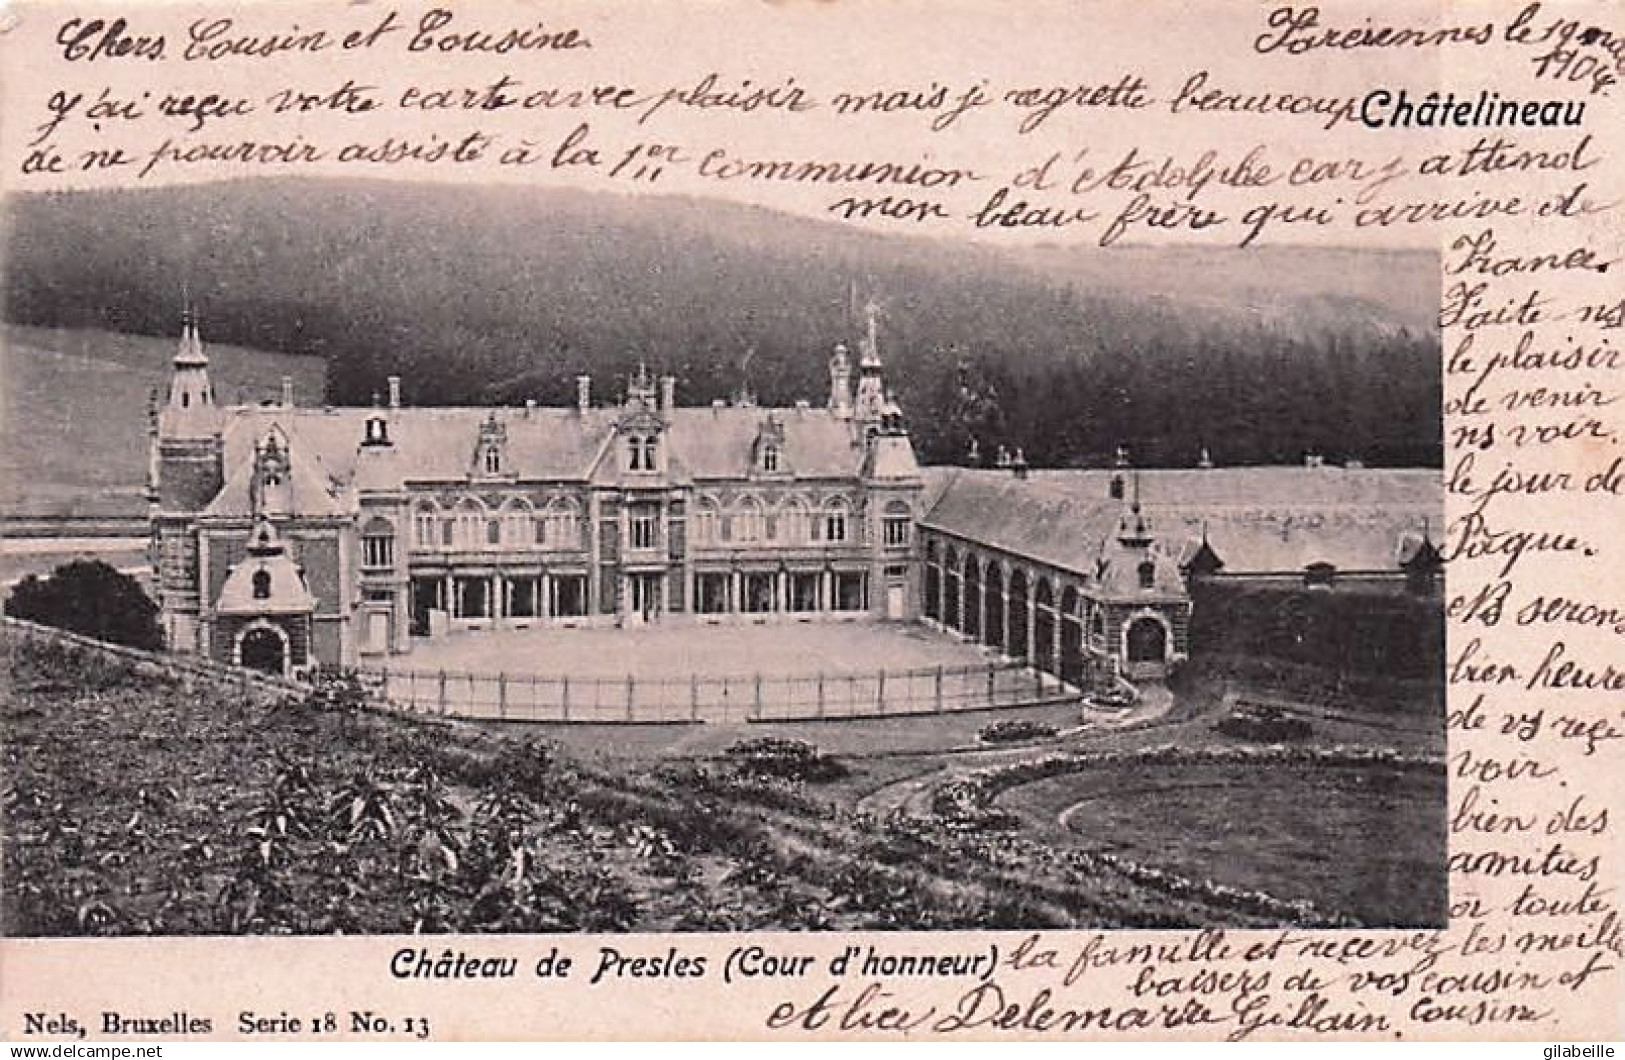 Farciennes le 19 mai
1904
Chers Cousin et Cousine.
J'ai reçu votre carte avec plaisir mais je regrette beaucoup
Châtelineau
de ne pourvoir assisté à la 1er communion d'Adolphe car j attend
mon beau frère qui arrive de
France.
Faite ns
le plaisir
de venir
ns voir.
le jour de
Pâque.
Ns serons
bien heure
de vs reçe
voir.
bien des
amitiés
à toute
la famille et recevez les meille
baisers de vos cousin et
cousine.
Alice Delemarre Gillain.
Château de Presles (Cour d'honneur)
Nels, Bruxelles Serie 18 No. 13
delcampe.net
gilabeille